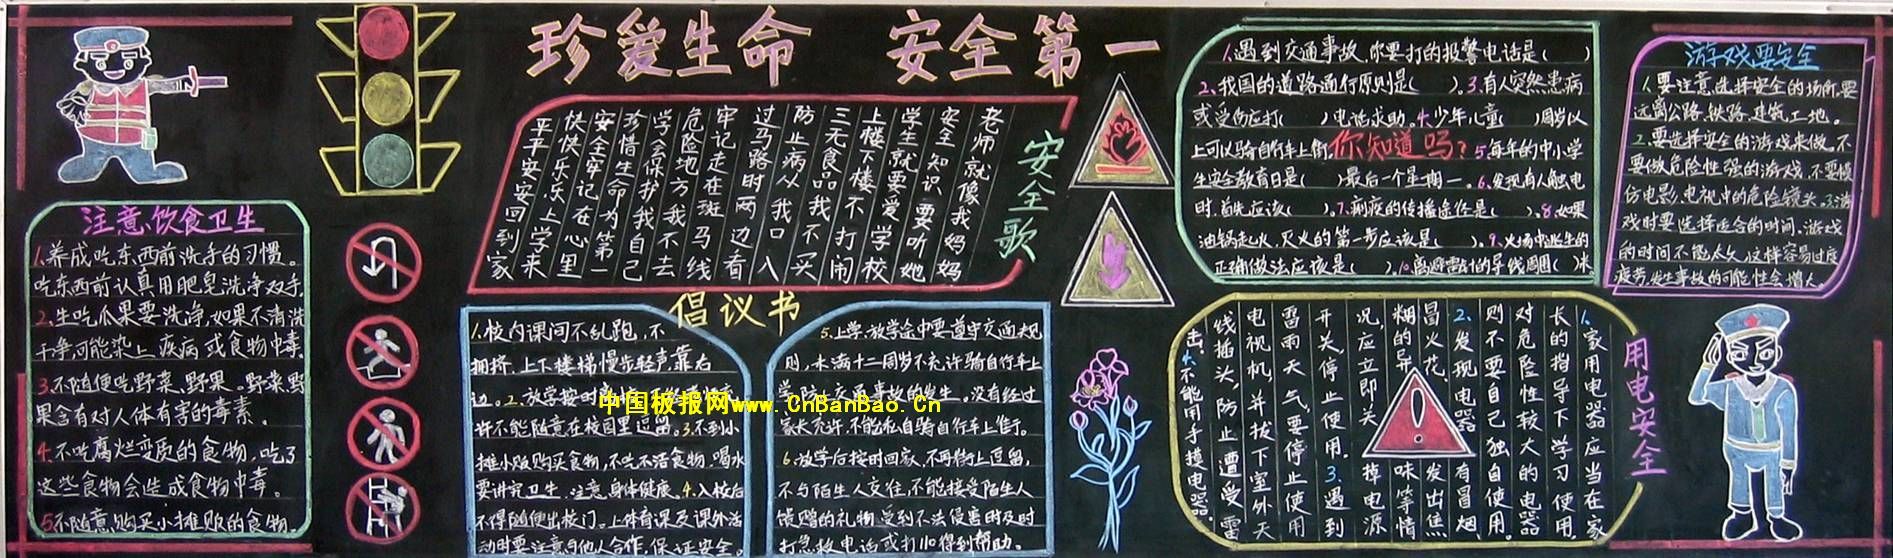 珍爱生命 安全第一
注意饮食卫生
1.养成吃东西前洗手的习惯。
吃东西前认真用肥皂洗净双手,
2.生吃瓜果要洗净,如果不清洗
干净,可能染上疾病或食物中毒。
3.不随便吃野菜、野果。野菜野
果含有对人体有害的毒素。
4.不吃腐烂变质的食物,吃了
这些食物会造成食物中毒。
5.不随意购买小摊贩的食物。
安全歌
老师就像我妈妈
安全知识要听她
学生就要爱学校
上楼下楼不打闹
三无食品我不买
防止病从我口入
过马路时两边看
牢记走在斑马线
危险地方我不去
学会保护我自己
珍惜生命为第一
安全牢记在心里
快快乐乐上学来
平平安安回到家
倡议书
1.校内课间不乱跑,不
拥挤,上下楼梯慢步轻声,靠右
边。2.放学按时
许不能随意在校园里逗留。3.不到小
摊小贩购买食物,不吃不洁食物,喝水
要讲究卫生,注意身体健康。4.入校后
不得随便出校门。上体育课及课外活
动时要注意与他人合作,保证安全。
5.上学、放学途中要遵守交通规
则,未满十二周岁不允许骑自行车上
学,防止交通事故的发生。没有经过
家长允许,不能私自骑自行车上街行。
6.放学后按时回家,不再街上逗留,
不与陌生人交往,不能接受陌生人
馈赠的礼物,受到不法侵害时及时
打急救电话或打110得到帮助。
中国板报网www.CnBanBao.Cn
1.遇到交通事故,你要打的报警电话是( )
2.我国的道路通行原则是( )。3.有人突然患病
或受伤应打( )电话求助。4.少年儿童( )周岁以
上可以骑自行车上街,你知道吗?5.每年的中小学
生安全教育日是( )最后一个星期一。6.发现有人触电
时,首先应该( )。7.痢疾的传播途径是( )。8.如果
油锅走火,灭火的第一步应该是( )。9.火场中逃生的
正确做法应该是( )。10.离避雷针的导线周围( )米
游戏要安全
1.要注意选择安全的场所,要
远离公路、铁路、建筑工地。
2.要选择安全的游戏来做,不
要做危险性强的游戏,不要模
仿电影、电视中的危险镜头。3.游
戏时要选择适合的时间,游戏
的时间不能太久,这样容易过度
疲劳,发生事故的可能性会增大。
用电安全
1.家用电器应当在家
长的指导下学习使用,
对危险性较大的电器
则不要自己独自使用。
2.发现电器有冒烟、
冒火花、发出焦
糊的异味等情
况,应立即关掉电源
开关,停止使用。3.遇到
雷雨天气要停止使用
电视机,并拔下室外天
线插头,防止遭受雷
击。4.不能用手摸电器。